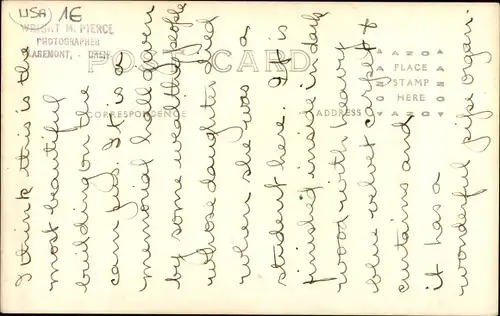 USA 1E
WRIGHT M. PIERCE
PHOTOGRAPHER
CLAREMONT,
POST CARD
CORRESPONDENCE
ADDRESS
AZO
PLACE
STAMP
HERE
AZO
I think this is the
most beautiful
building on the
campus. It is a
memorial hall given
by some wealthy people
whose daughter died
when she was a
student here. It is
finished inside in dark
wood with heavy
blue velvet carpet &
curtains and
it has a
wonderful pipe organ.